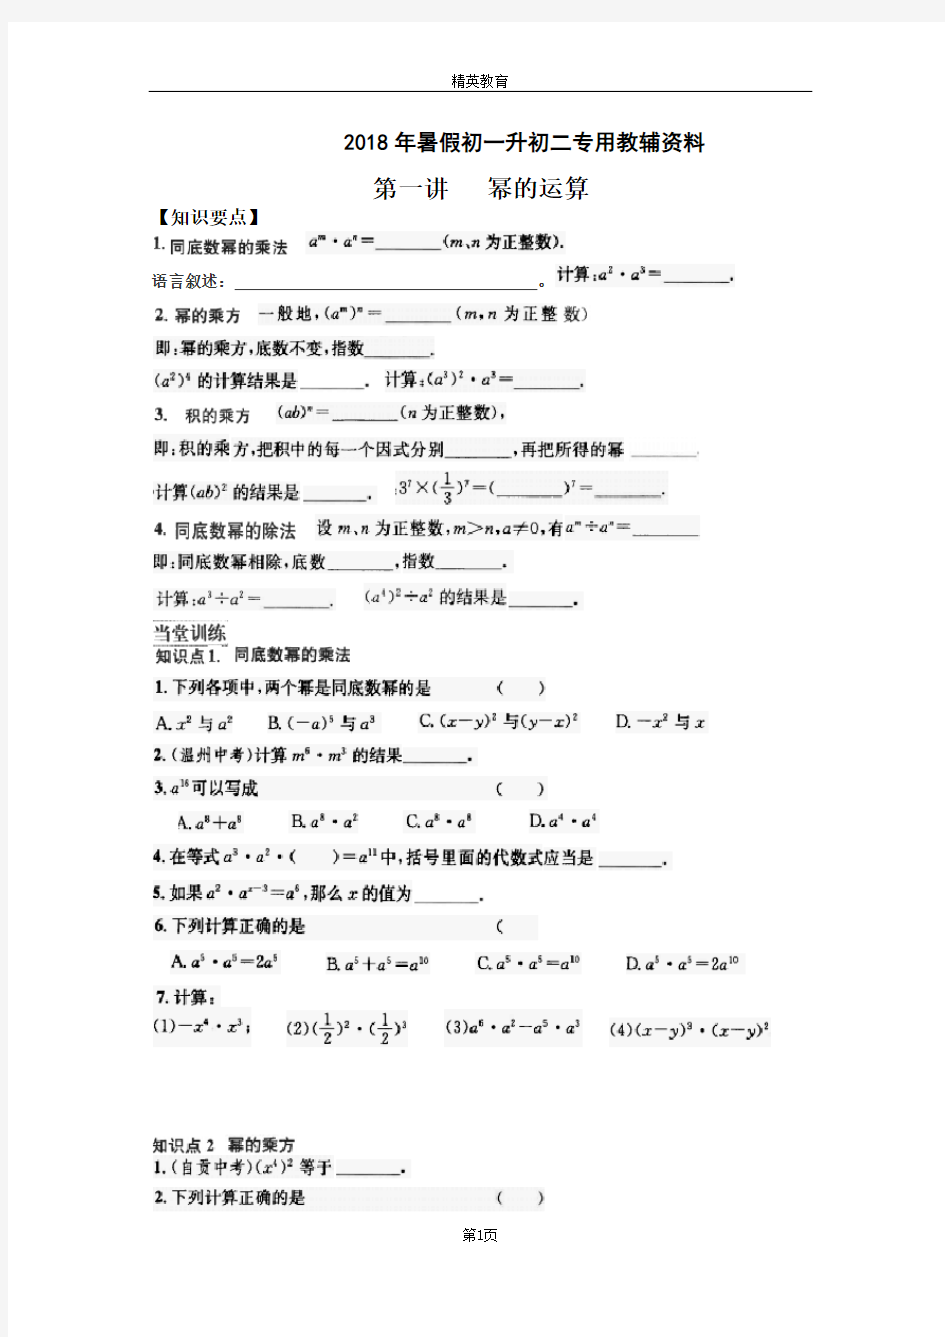 精英教育
2018年暑假初一升初二专用教辅资料
第一讲 幂的运算
【知识要点】
1. 同底数幂的乘法 aᵐ·aⁿ=______(m、n为正整数).
语言叙述：______________________。计算:a²·a³=______.
2. 幂的乘方 一般地,(aᵐ)ⁿ=______(m,n为正整数)
即:幂的乘方,底数不变,指数______.
(a²)⁴的计算结果是______. 计算:(a³)²·a³=______.
3. 积的乘方 (ab)ⁿ=______(n为正整数),
即:积的乘方,把积中的每一个因式分别______,再把所得的幂______.
计算(ab)²的结果是______. 3⁷×(1/3)⁷=(______)⁷=______.
4. 同底数幂的除法 设m、n为正整数,m>n,a≠0,有aᵐ÷aⁿ=______
即:同底数幂相除,底数______,指数______.
计算:a³÷a²=______. (a⁴)²÷a²的结果是______.
当堂训练
知识点1. 同底数幂的乘法
1.下列各项中,两个幂是同底数幂的是 ( )
A.x²与a² B.(-a)⁵与a³ C.(x-y)²与(y-x)² D.-x²与x
2.(温州中考)计算m⁶·m³的结果______.
3.a¹⁶可以写成 ( )
A.a⁸+a⁸ B.a⁸·a² C.a⁸·a⁸ D.a⁴·a⁴
4.在等式a³·a²·( )=a¹¹中,括号里面的代数式应当是______.
5.如果a²·aˣ⁻³=a⁶,那么x的值为______.
6.下列计算正确的是 (
A.a⁵·a⁵=2a⁵ B.a⁵+a⁵=a¹⁰ C.a⁵·a⁵=a¹⁰ D.a⁵·a⁵=2a¹⁰
7.计算:
(1)-x⁴·x³; (2)(1/2)²·(1/2)³ (3)a⁶·a²-a⁵·a³ (4)(x-y)³·(x-y)²
知识点2 幂的乘方
1.(自贡中考)(x⁴)²等于______.
2.下列计算正确的是 ( )
第1页